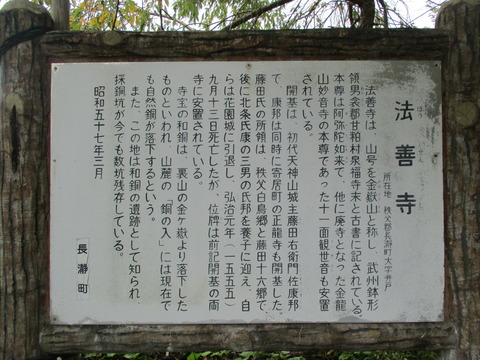 法善寺
所在地 秩父郡長瀞町大字井戸
法善寺は、山号を金嶽山と称し、武州鉢形
領男衾郡甘粕村泉福寺末と古書に記されている。
本尊は阿弥陀如来で、他に廃寺となった金龍
山妙音寺の本尊であった十一面観世音も安置
されている。
開基は、初代天神山城主藤田右衛門佐康邦
で、康邦は同時に寄居町の正龍寺も開基した。
藤田氏の所領は、秩父白鳥郷と藤田十六郷で、
後に北条氏康の三男の氏邦を養子に迎え、自
らは花園城に引退し、弘治元年(一五五五)
九月十三日死亡したが、位牌は前記開基の両
寺に安置されている。
寺宝の和銅は、裏山の金ヶ嶽より落下した
ものといわれ、山麓の「銅の入」には現在で
も自然銅が落下するという。
また、この地は和銅の遺跡として知られ、
採銅坑が今でも数坑残存している。
昭和五十七年三月
長瀞町